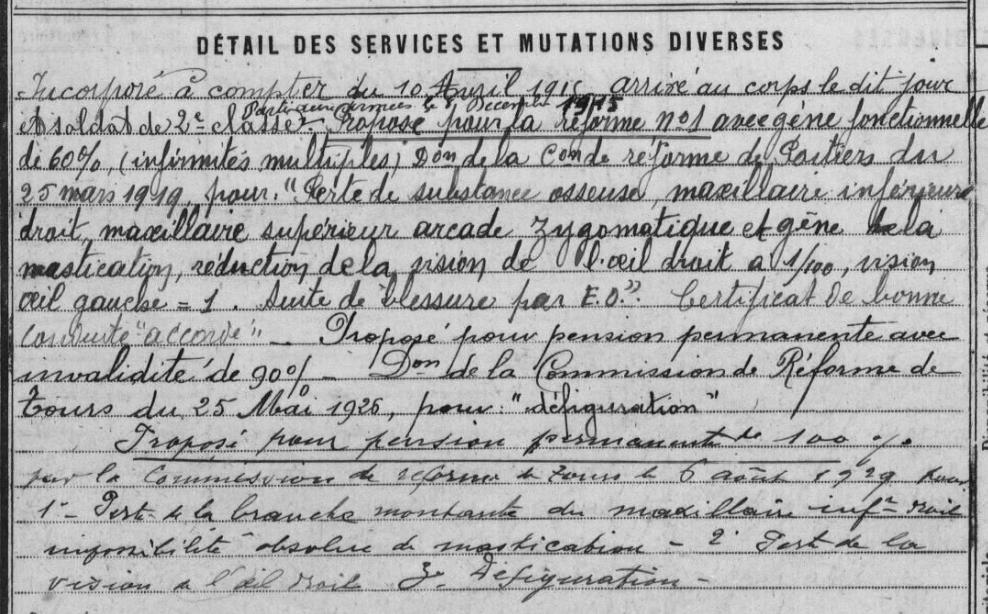 DÉTAIL DES SERVICES ET MUTATIONS DIVERSES
Incorporé à compter du 10 Avril 1915 arrivé au corps le dit jour
Parti aux armées le 1 Décembre 1915
et soldat de 2e classe. Proposé pour la réforme n°1 avec gêne fonctionnelle
de 60%, (infirmités multiples) Don de la Con de réforme de Poitiers du
25 mars 1919, pour: "Perte de substance osseuse, maxillaire inférieure
droit, maxillaire supérieur arcade zygomatique et gêne de la
mastication, réduction de la vision de l'œil droit a 1/100, vision
œil gauche = 1. Suite de blessure par E.O." Certificat de bonne
conduite "accordé" - Proposé pour pension permanente avec
invalidité de 90% - Don de la Commission de Réforme de
Tours du 25 Mai 1925, pour: "défiguration"
Proposé pour pension permanente de 100 %
par la Commission de réforme de Tours le 6 août 1929 pour
1°- Perte de la branche montante du maxillaire infr droit
impossibilité absolue de mastication - 2° Perte de la
vision de l'œil droit 3° Défiguration -